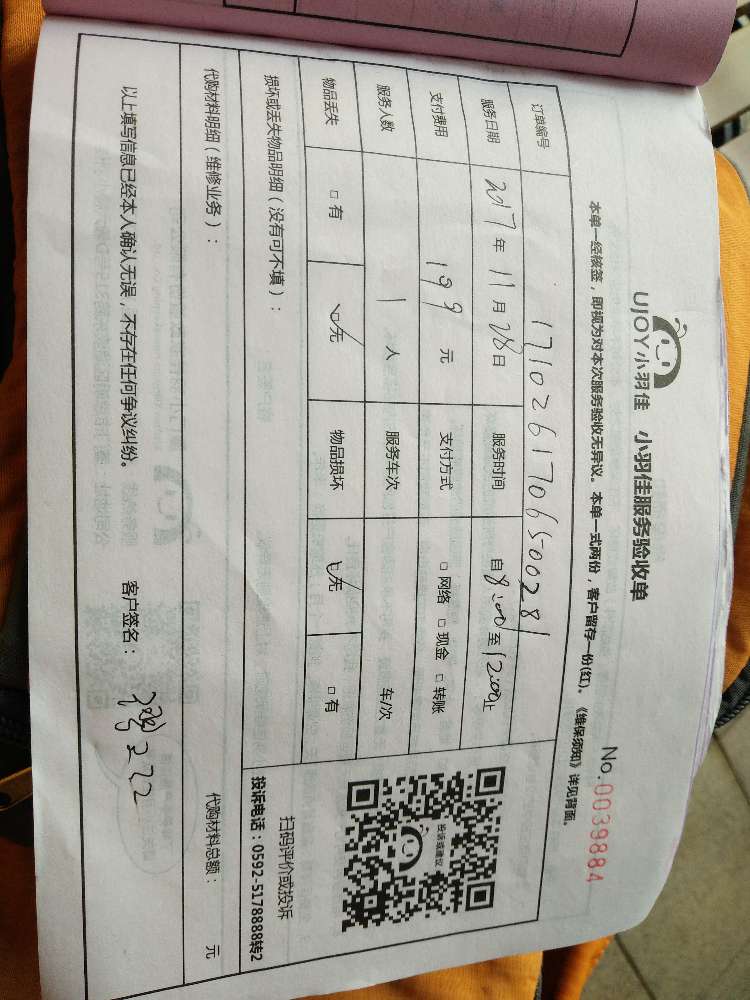 UJOY小羽佳 小羽佳服务验收单
No.0039884
本单一经核签，即视为对本次服务验收无异议。本单一式两份，客户留存一份(红)。《维保须知》详见背面。
订单编号 17102617065000281
服务日期 2017年11月28日 服务时间 自8:00至12:00止
支付费用 199元 支付方式 □网络 □现金 □转账
服务人数 1人 服务车次 车/次
物品丢失 □有 □无 物品损坏 □无 □有
投诉或建议
扫码评价或投诉
投诉电话：0592-5178888转2
损坏或丢失物品明细（没有可不填）：
代购材料明细（维修业务）： 代购材料总额： 元
以上填写信息已经本人确认无误，不存在任何争议纠纷。 客户签名：